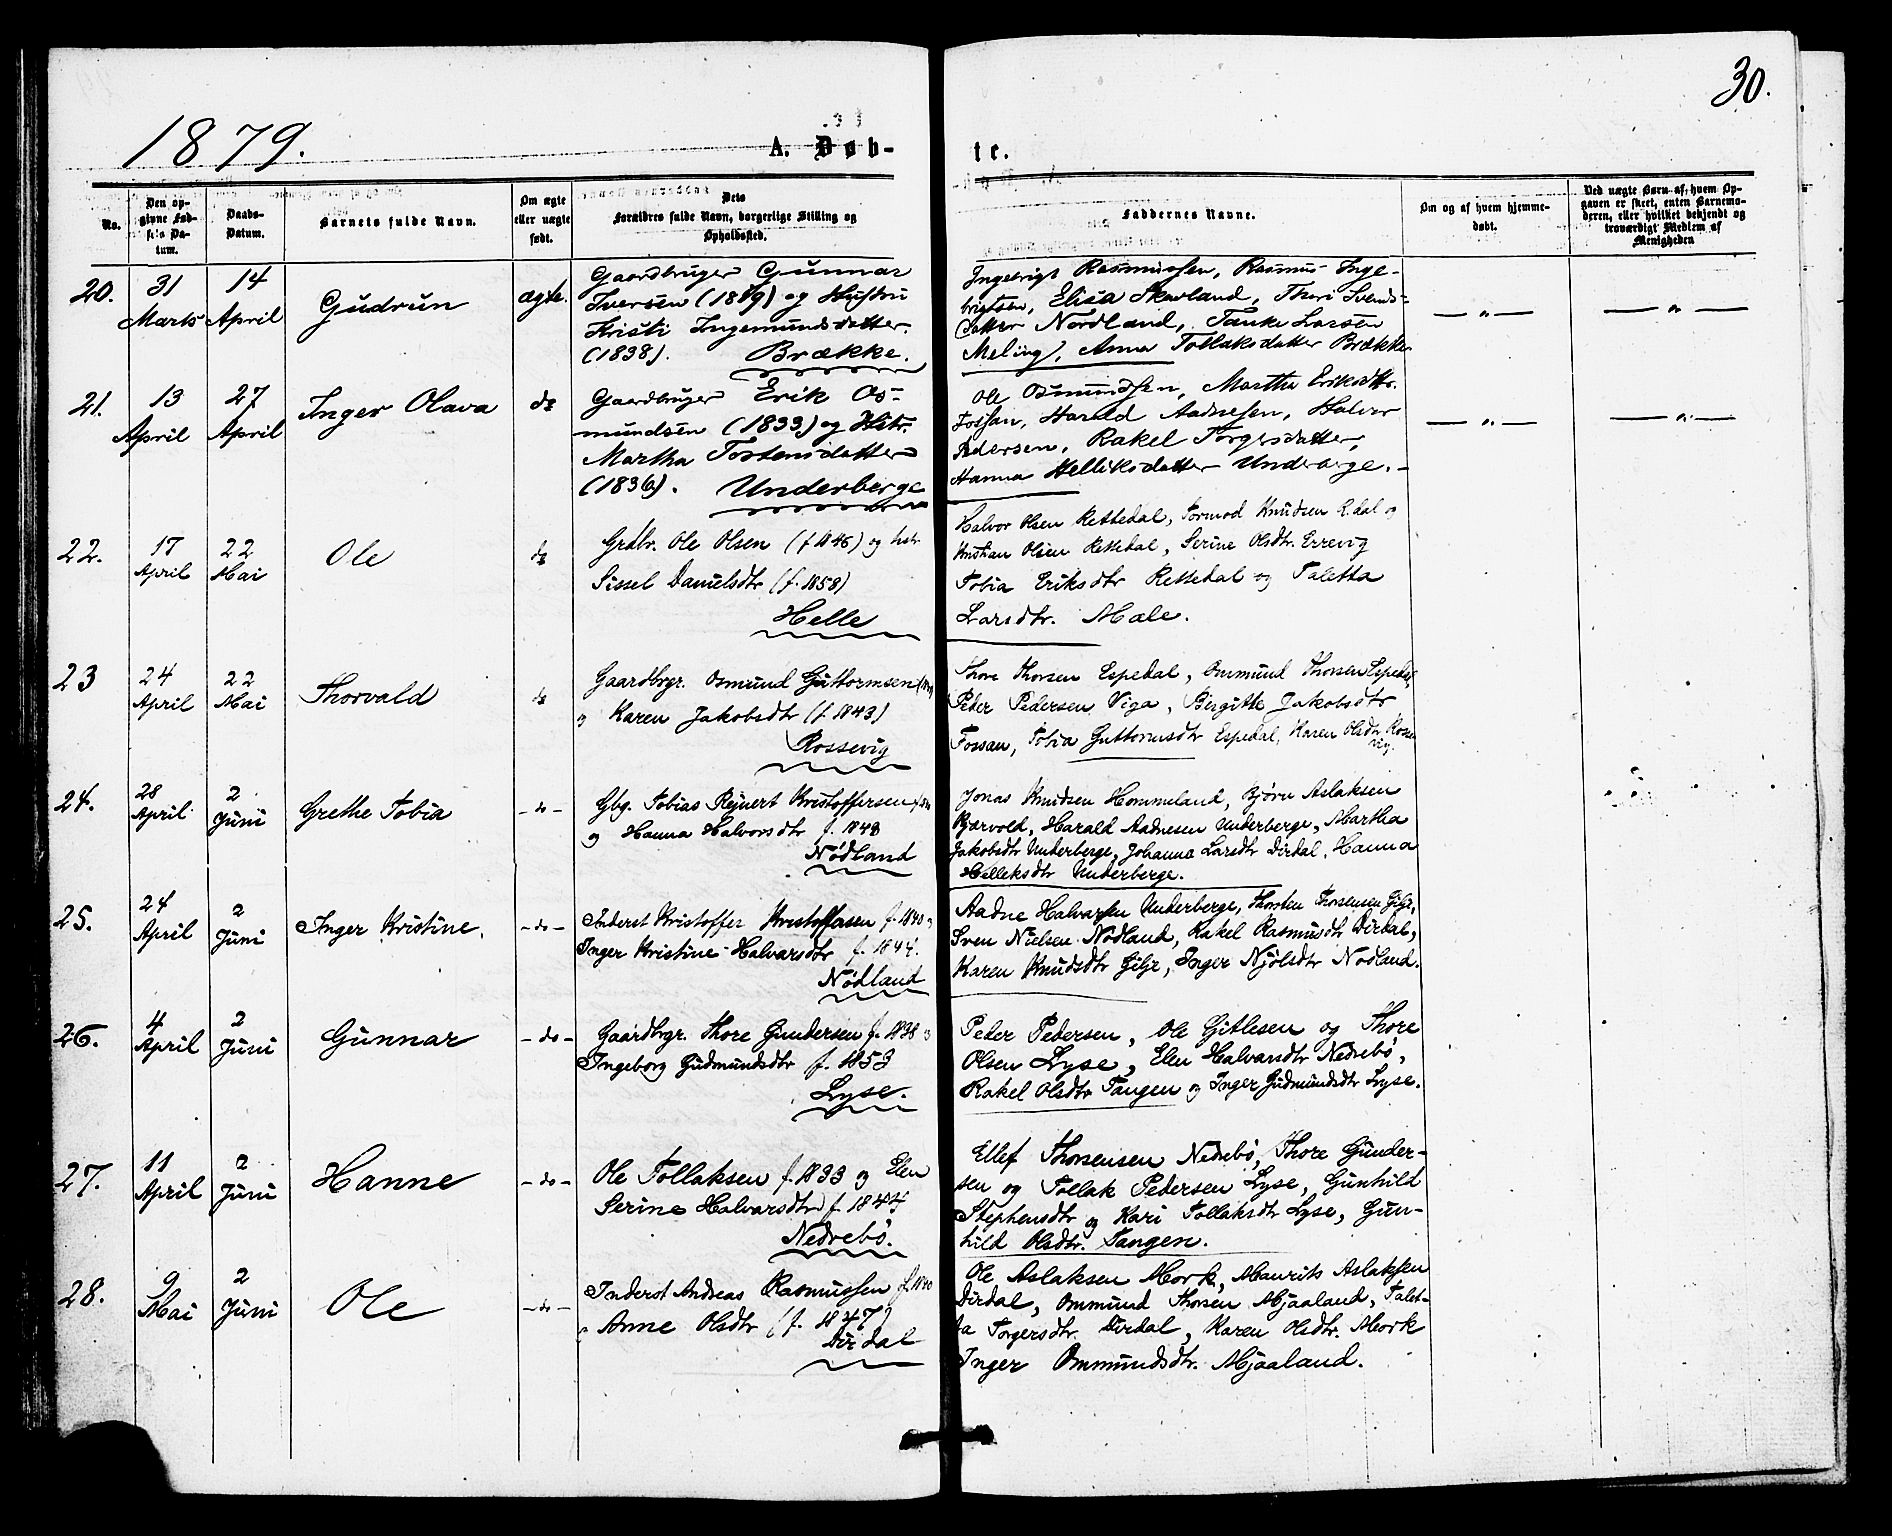 30.
1879.
A. Døb-
te.
No.
Den op-
givne Fød-
sels Da-
tum.
Daabs-
Datum.
Barnets fulde Navn.
Om ægte
eller uægte
født.
Dets
Forældres fulde Navn, borgerlige Stilling og
Opholdssted.
Faddernes Navne.
Om og af hvem hjemme-
døbt.
Ved uægte Børn af hvem Op-
gaven er skeet, enten Barnemo-
deren, eller hvilket bekjendt og
troværdigt Medlem af
Menigheden
20.
31
Marts
14
April
Gudrun
ægte.
Gaardbruger Gunnar
Iversen (1819) og Hustru
Kristi Ingemundsdatter
(1838). Brække.
Ingebrigt Rasmussen, Rasmus Inge-
brigtsen, Elisa Skavland, Theri Svends-
datter Nordland, Tanke Larsen
Meling, Anna Tollaksdatter Brække
— " —
— " —
21.
13
April
27
April
Inger Olava
do
Gaardbruger Erik Os-
mundsen (1833) og Hstr.
Martha Tostensdatter
(1836). Underberge
Ole Osmundsen, Martha Eriksdtr.
Fossan, Harald Aadnesen, Halvor
Pedersen, Rakel Torgersdatter,
Hanna Helliksdatter Underberge. -
— " —
— " —
22.
17
April
22
Mai
Ole
do
Grdbr. Ole Olsen (f 1846) og hstr.
Sissel Danielsdtr (f. 1858)
Helle
Halvor Olsen Rettedal, Tormod Knudsen R.dal og
Kristian Olsen Rettedal, Serine Olsdtr. Errevig
Tobia Eriksdtr Rettedal og Taletta
Larsdtr. Mæle.
23
24
April
22
Mai
Thorvald
do
Gaardbrgr. Osmund Guttormsen
og Karen Jakobsdtr (f 1843)
Rossevig
Thore Thorsen Espedal, Ommund Thorsen Espedal,
Peder Pedersen Viga, Birgitte Jakobsdtr
Fossan, Tobia Guttormsdtr Espedal, Karen Olsdtr Rosse
vig.
24.
28
April
2
Juni
Grethe Tobia
- do -
Gbg. Tobias Rejnert Kristoffersen
og Hanna Halvorsdtr f. 1848
Nødland
Jonas Knudsen Hommeland, Bjørn Aslaksen
Bjørvold, Harald Aadnesen Underberge, Martha
Jakobsdtr Underberge, Johanna Larsdtr Dirdal, Hanna
Helleksdtr Underberge.
25.
24
April
2
Juni
Inger Kristine.
- do -
Inderst Kristoffer Kristoffersen f. 1840 og
Inger Kristine Halvarsdtr f. 1844.
Nødland
Aadne Halvarsen Underberge, Thorsten Thorsensen Gilje,
Sven Nielsen Nødland, Rakel Rasmusdtr Dirdal,
Karen Knudsdtr Gilje, Inger Njølsdtr Nødland.
26.
4
April
2
Juni
Gunnar
- do -
Gaardbrgr. Thore Gundersen f. 1838 og
Ingeborg Gudmundsdtr f. 1853
Lyse.
Peder Pedersen, Ole Gitlesen og Thore
Olsen Lyse, Elen Halvarsdtr Nedrebø,
Rakel Olsdtr Tangen og Inger Gudmundsdtr Lyse.
27.
11
April
2
Juni
Hanne
- do -
Ole Tollaksen f. 1833 og Elen
Serine Halvarsdtr f. 1844
Nedrebø.
Ellef Thorsensen Nedrebø, Thore Gunder-
sen og Tollak Pedersen Lyse, Gunhild
Stephensdtr og Kari Tollaksdtr Lyse, Gun-
hild Olsdtr. Tangen.
28.
9
Mai
2
Juni
Ole
- do -
Inderst Andreas Rasmussen f. 1840
Anne Olsdtr (f. 1847)
Dirdal
Ole Aslaksen Mork, Maurits Aslaksen
Dirdal, Ommund Thorsen Mjaaland, Talet-
ta Torgersdtr. Dirdal, Karen Olsdtr. Mork
Inger Ommundsdtr. Mjaaland.